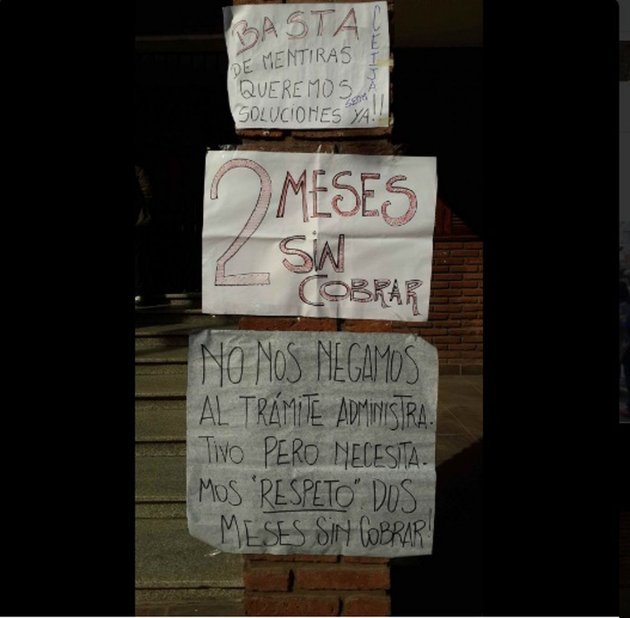 BASTA
DE MENTIRAS
QUEREMOS
SOLUCIONES YA!!
2 MESES
SIN
COBRAR
NO NOS NEGAMOS
AL TRÁMITE ADMINISTRA-
TIVO PERO NECESITA-
MOS "RESPETO". DOS
MESES SIN COBRAR!